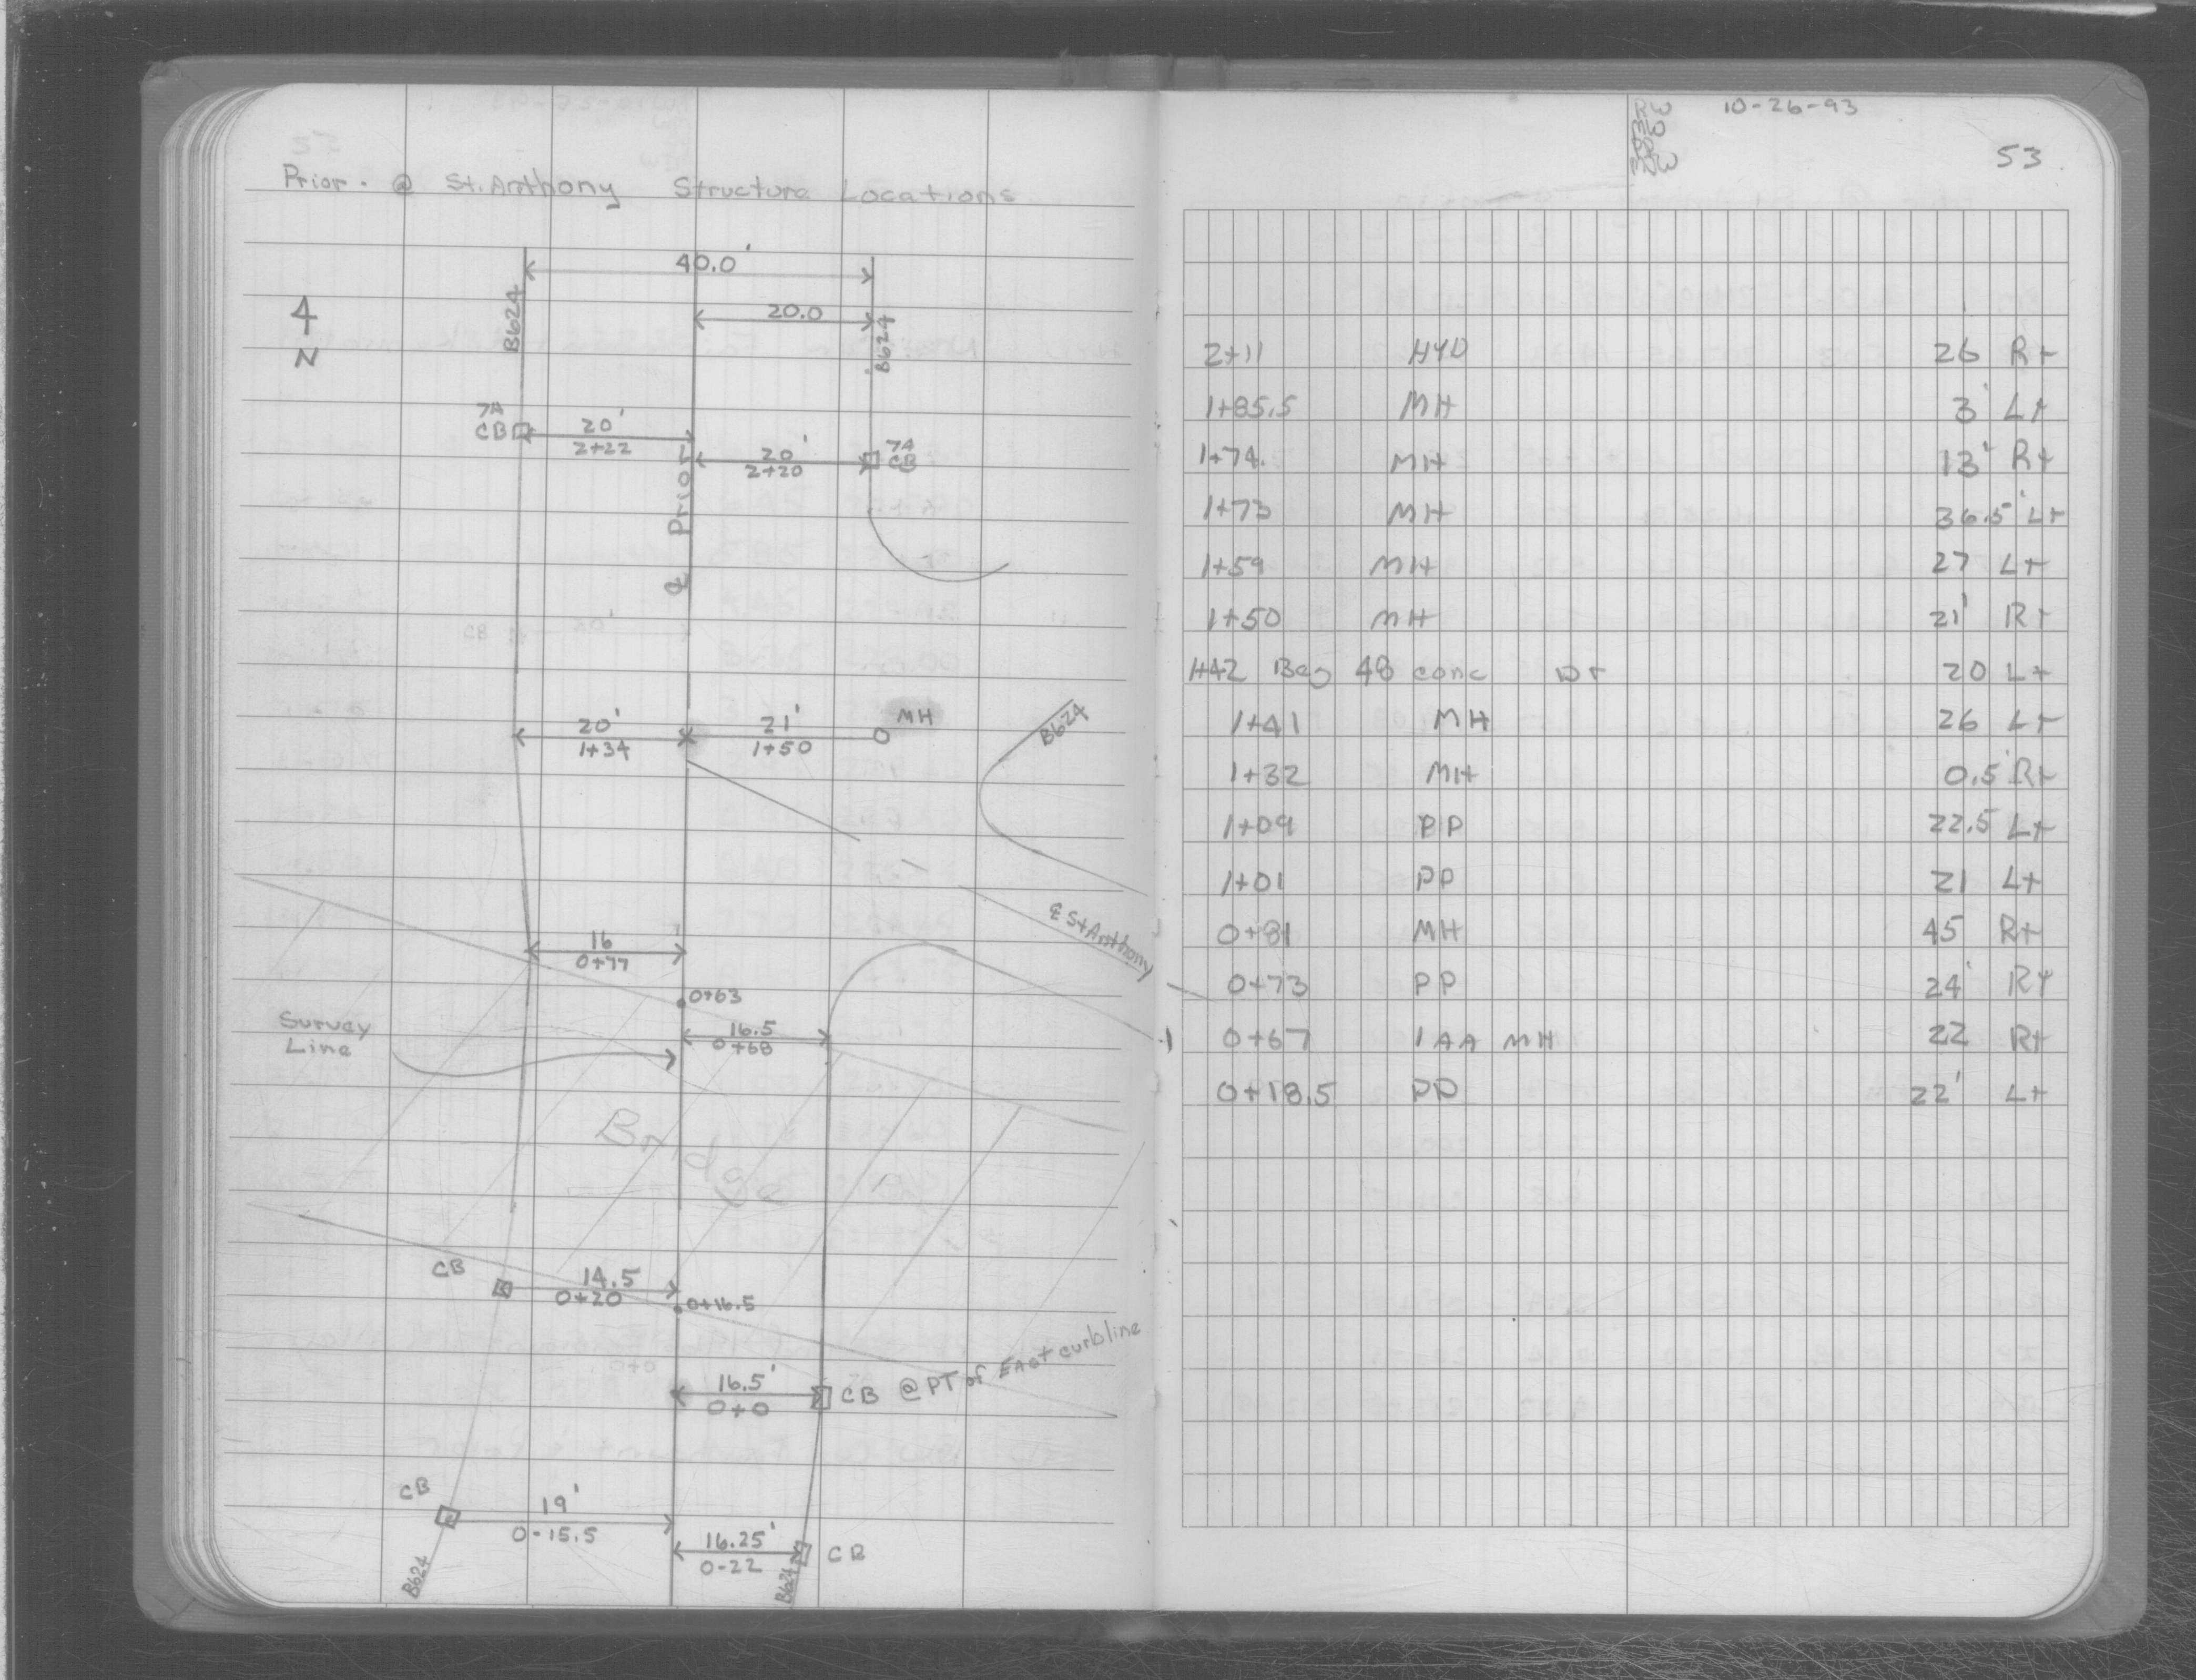 Prior. @ St. Anthony Structure Locations
40.0'
20.0
N
B624
B624
7A
CB
20'
2+22
20'
2+20
7A
CB
℄ Prior
CB 20'
20'
1+34
21'
1+50
MH
B624
℄ St Anthony
16
0+77
0+63
16.5
0+68
Survey
Line
Bridge
CB
14.5
0+20
0+16.5
16.5'
0+0
CB @ PT of East curbline
CB
19'
0-15.5
16.25'
0-22
CB
B624
B624
10-26-93
53
2+11 HYD 26 Rt
1+85.5 MH 3' Lt
1+74. MH 13' Rt
1+73 MH 36.5' Lt
1+59 MH 27 Lt
1+50 MH 21' Rt
1+42 Beg 48 conc Dr 20 Lt
1+41 MH 26 Lt
1+32 MH 0.5' Rt
1+09 PP 22.5 Lt
1+01 PP 21 Lt
0+81 MH 45 Rt
0+73 PP 24' Rt
0+67 1AA MH 22 Rt
0+18.5 PP 22' Lt